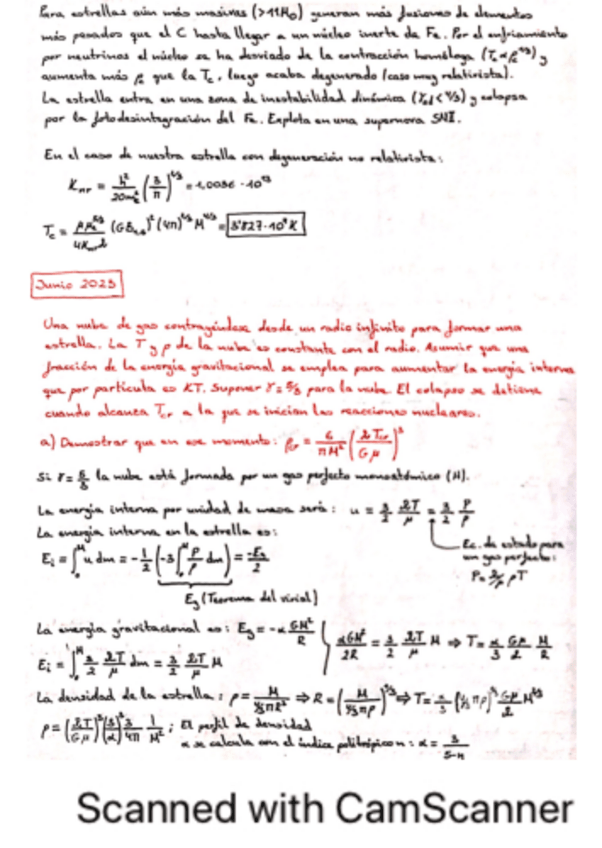 Para estrellas aún más masivas (>11M₀) generan más fusiones de elementos
más pesados que el C hasta llegar a un núcleo inerte de Fe. Por el enfriamiento
por neutrinos el núcleo se ha desviado de la contracción homóloga (Tc ∝ ρc^1/3) y
aumenta más ρc que la Tc, luego acaba degenerado (caso muy relativista).
La estrella entra en una zona de inestabilidad dinámica (γad < 4/3) y colapsa
por la fotodesintegración del Fe. Explota en una supernova SNII.
En el caso de nuestra estrella con degeneración no relativista:
Knr = h²/20me (3/π)^2/3 = 1,0036 · 10^13
Tc = (4π)^2/3 M^4/3 =
Junio 2023
Una nube de gas contrayéndose desde un radio infinito para formar una
estrella. La T y ρ de la nube es constante con el radio. Asumir que una
fracción de la energía gravitacional se emplea para aumentar la energía interna
que por partícula es KT. Suponer γ = 5/3 para la nube. El colapso se detiene
cuando alcanza Tcr a la que se inician las reacciones nucleares.
a) Demostrar que en ese momento: ρcr = 6/πM² (ℛTcr/Gμ)³
Si γ = 5/3 la nube está formada por un gas perfecto monoatómico (H).
La energía interna por unidad de masa será: u = 3/2 ℛT/μ = 3/2 P/ρ
La energía interna en la estrella es:
Ec. de estado para
un gas perfecto:
P = ℛ/μ ρT
Ei = ∫₀ᴹ u dm = -1/2 (-3∫₀ᴹ P/ρ dm) = -Eg/2
Eg (Teorema del virial)
La energía gravitacional es: Eg = -α GM²/R
αGM²/2R = 3/2 ℛT/μ M ⇒ T = α/3 Gμ/ℛ M/R
Ei = ∫₀ᴹ 3/2 ℛT/μ dm = 3/2 ℛT/μ M
La densidad de la estrella: ρ = M/(4/3πR³) ⇒ R = (M/(4/3πρ))^1/3 ⇒ T = α/3 (4/3πρ)^1/3 Gμ/ℛ M^2/3
ρ = (ℛT/Gμ)³ (3/α)³ 3/4π 1/M²; El perfil de densidad
α se calcula con el índice politrópico n: α = 3/5-n
Scanned with CamScanner